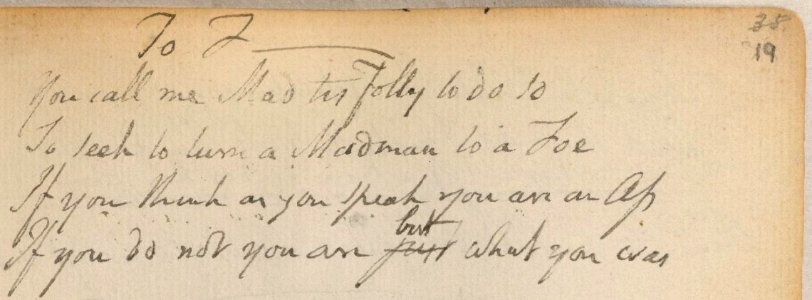 19
To F———
You call me Mad tis Folly to do so
To seek to turn a Madman to a Foe
If you think as you speak you are an Aſs
If you do not you are but just what you was